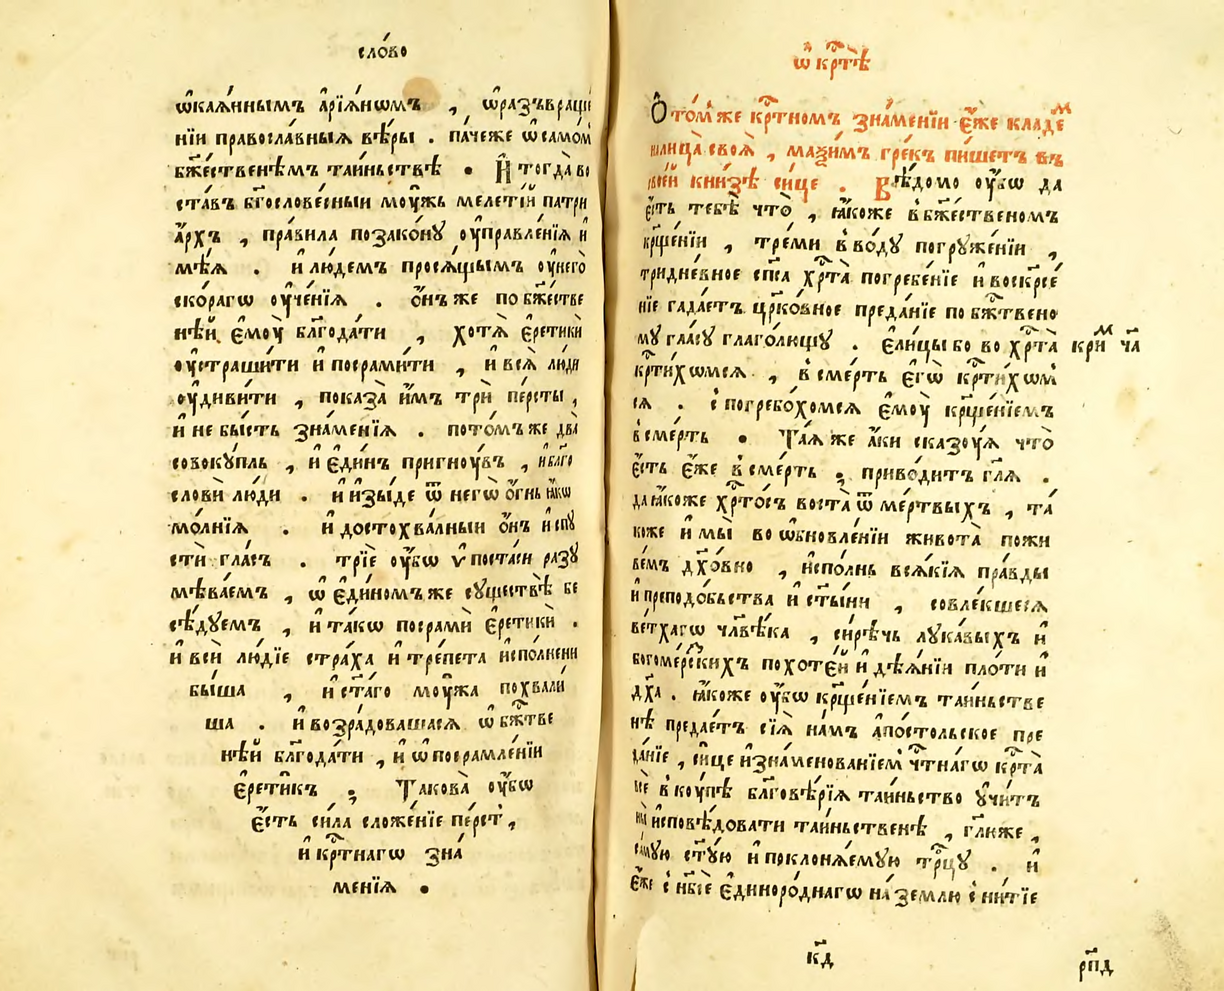 сло́во
ѡ҆кая́ннымъ а҆рїѧ́нѡмъ , ѡ҆разъвраще́
нїи правосла́вныѧ вѣ́ры . па́чеже ѡ҆ самом̾
бж҃е́ственѣмъ та́иньствѣ • И҆ тогда̀ во
ста́въ бг҃осло́ве́сныи моу́жь меле́тїи патри
а҆́рхъ , пра́вила позако́нꋋ оу҆правле́нїѧ и҆
мѣ́ѧ . и҆ лю́демъ просѧ́щымъ оу҆ него̀
ско́рагѡ оу҆че́нїѧ . ѻ҆́нъ же по бж҃е́стве
нѣ́й є҆моу̀ блг҃ода́ти , хотѧ̀ є҆ретикѝ
оу҆страши́ти и҆ посрами́ти , и҆ всѧ̀ лю́ди
оу҆диви́ти , показа̀ и҆̀мъ трѝ пе́рсты ,
и҆ не бы́сть зна́менїѧ . пото́мъ же два̀
совокꋋ́пль , и҆ є҆ди́нъ пригноу́въ , и҆ блг҃о
слови̾ лю́ди . и҆ и҆зы́де ѿ негѡ̀ ѻ҆́гнь ꙗ҆́кѡ
мо́лнїѧ . и҆ достохва́лныи ѻ҆́нъ и҆спꋋ
стѝ гла́съ . трїѐ оу҆́бѡ ѵ҆поста́си разꋋ
мѣва́емъ , ѡ҆ є҆ди́номъ же сꋋществѣ̀ бе
сѣ́дꋋемъ , и҆ та́кѡ посрамѝ є҆ретикѝ .
и҆ всѝ лю́дїе стра́ха и҆ тре́пета и҆спо́лнени
бы́ша , и҆ ст҃а́го моу́жа похвали́
ша . и҆ возра́довашасѧ ѡ҆ бж҃тве
нѣ́й блг҃ода́ти , и҆ ѡ҆ посрамле́нїи
є҆рети̑къ ; Такова̀ оу҆́бѡ
є҆́сть си́ла сложе́нїе пе́рст̾ ,
и҆ кр҃тнагѡ зна́
менїѧ •
ѡ҆ кр҃тѣ̀
Ѻ҆ то́м̾ же кр҃тномъ зна́менїи є҆́же кладем̾
на лица̀ своѧ̀ , маѯи́мъ гре́къ пи́шетъ въ
свое́й кни́зѣ си́це . Вѣ́домо оу҆́бѡ да
є҆́сть тебѣ̀ что̀ , ꙗ҆́коже в̾ бж҃е́ственомъ
крщ҃е́нїи , тре́ми в̾ во́дꋋ погрꋋже́нїи ,
тридне́вное сп҃са хр҃та̀ погребе́нїе и҆ воскр҃се́
нїе гада́етъ цр҃ко́вное преда́нїе по бж҃твено
мꋋ гла́сꋋ глаго́лющꋋ . є҆ли́цы бо во хр҃та̀ кри м̾ ча
кр҃ти́хѡмсѧ , в̾ сме́рть є҆гѡ̀ кр҃ти́хѡм̾
сѧ . с̾погребо́хомсѧ є҆моу̀ крщ҃е́нїемъ
в̾ сме́рть • Та́ѧ же а҆́ки сказоу́ѧ что̀
є҆́сть є҆́же в̾ сме́рть ; приво́дитъ гл҃ѧ .
да ꙗ҆́коже хр҃то́съ воста̀ ѿ ме́ртвыхъ , та́
коже и҆ мы̀ во ѡ҆бновле́нїи живота̀ пожи
ве́мъ дх҃о́вно , и҆спо́лнь всѧ́кїѧ пра́вды
и҆ преподо́бьства и҆ ст҃ы́ни , совле́кшесѧ
ве́тхагѡ чл҃вѣ́ка , си́рѣчь лꋋка́выхъ и҆
богоме́рскихъ по́хотей и҆ дѣѧ́нїи пло́ти и҆
дх҃а . ꙗ҆́коже оу҆́бѡ крщ҃е́нїемъ та́иньстве
нѣ предае́тъ сїѧ̀ на́мъ а҆по́стольское пре
да́нїе , си́це и҆ зна́менованїем̾ чт҃на́гѡ кр҃та̀
всѐ вкоу́пѣ благовѣ́рїѧ та́иньство ꋋ҆чи́тъ
ны̀ и҆сповѣ́довати та́иньственѣ , гл҃ю́же ,
са́мꋋю ст҃ꋋ́ю и҆ поклонѧ́емꋋю тр҃цꋋ . и҆
є҆́же с̾ нб҃сѐ є҆диноро́днагѡ на́ землю с̾ни́тїе
кд҃
рп҃д